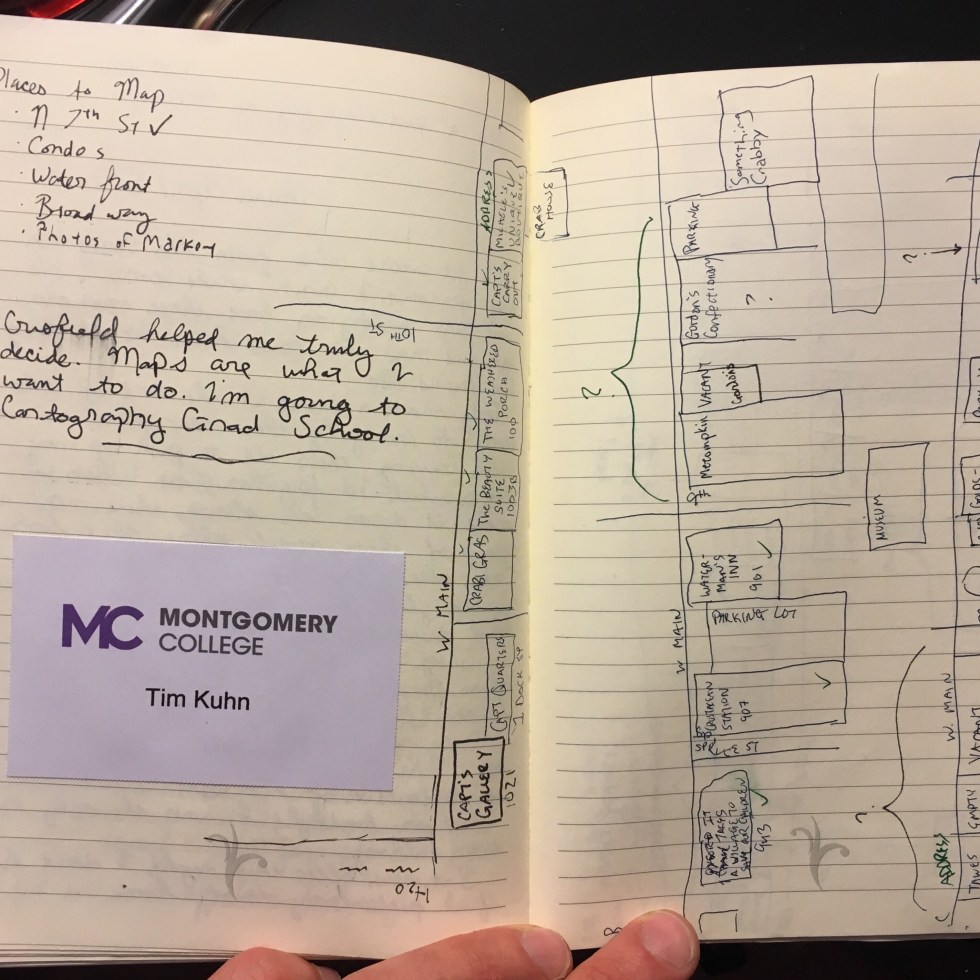 Places to Map
· N 7th St ✓
· Condos
· Water front
· Broad way
· Photos of Market
Crisfield helped me truly
decide. Maps are what I
want to do. I'm going to
Cartography Grad School.
MC MONTGOMERY
COLLEGE
Tim Kuhn
10TH ST
ADDRESS
MICHELE'S
CRAB
HOUSE
CAPT'S
CARRY
OUT
THE WEATHERED
PORCH
100
THE BEAUTY
SUITE
1003B
CRABI GRAS
W MAIN
CAPT QUARTERS
1 DOCK ST
CAPT'S
GALLERY
1021
H2O
Something
Crabby
PARKING
Gordon's
Confectionary
?
VACANT
Gordons
Metompkin
?
MUSEUM
WATER-
MAN'S
INN
901
W MAIN
PARKING LOT
STATION
907
ST
IT
TAKES
A VILLAGE TO
OUR CHILDREN
943
?
?
W. MAIN
VACANT
EMPTY
ADDRESS
TAWES